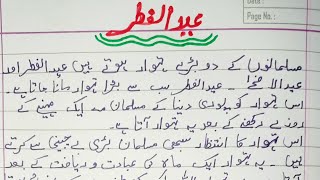 Date :
Page No. :
عید الفطر
مسلمانوں کے دو بڑے تہوار ہوتے ہیں عید الفطر اور
عید الاضحٰی۔ عید الفطر سب سے بڑا تہوار مانا جاتا ہے۔
اس تہوار کو پوری دنیا کے مسلمان مہ ایک مہینے کے
روزے رکھنے کے بعد یہ تہوار آتا ہے۔
اس تہوار کا انتظار سبھی مسلمان بڑی بے چینی سے کرتے
ہیں۔ یہ تہوار ایک ماہ کی عبادت و ریاضت کے بعد